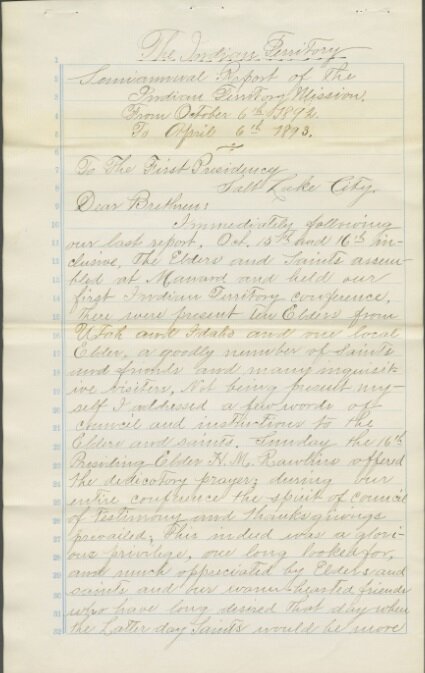 The Indian Territory
Semiannual Report of the
Indian Territory Mission.
From October 6th 1892.
To April 6th 1893.
To The First Presidency
Salt Lake City.
Dear Brethren:
Immediately following
our last report, Oct. 15th and 16th in-
clusive, The Elders and Saints assem-
bled at Manard and held our
first Indian Territory conference,
There were present Ten Elders from
Utah and Idaho and one local
Elder, a goodly number of saints
and friends and many inquisit-
ive visitors, Not being present my-
self I addressed a few words of
council and instructions to the
Elders and saints, Sunday the 16th
Presiding Elder H. M. Rawlins offered
the dedicatory prayer; during our
entire conference the spirit of council
of testimony and thanksgivings
prevailed; This indeed was a glori-
ous privilege, one long looked for,
and much appreciated by Elders and
saints and our warm hearted friends
who have long desired that day when
the Latter day Saints would be more